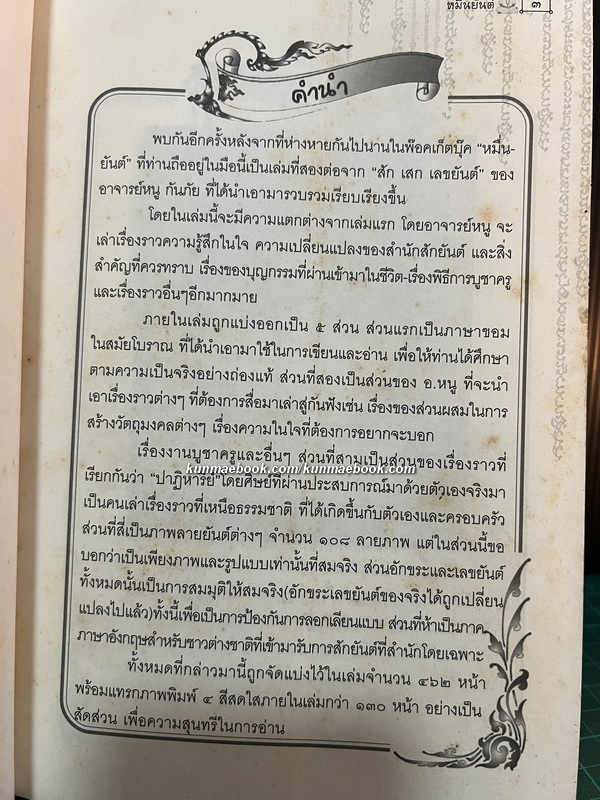 หมื่นยันต์ ๓
คำนำ
พบกันอีกครั้งหลังจากที่ห่างหายกันไปนานในพ๊อคเก็ตบุ๊ค “หมื่น-
ยันต์” ที่ท่านถืออยู่ในมือนี้เป็นเล่มที่สองต่อจาก “สัก เสก เลขยันต์” ของ
อาจารย์หนู กันภัย ที่ได้นำเอามารวบรวมเรียบเรียงขึ้น
โดยในเล่มนี้จะมีความแตกต่างจากเล่มแรก โดยอาจารย์หนู จะ
เล่าเรื่องราวความรู้สึกในใจ ความเปลี่ยนแปลงของสำนักสักยันต์ และสิ่ง
สำคัญที่ควรทราบ เรื่องของบุญกรรมที่ผ่านเข้ามาในชีวิต-เรื่องพิธีการบูชาครู
และเรื่องราวอื่นๆอีกมากมาย
ภายในเล่มถูกแบ่งออกเป็น ๕ ส่วน ส่วนแรกเป็นภาษาขอม
ในสมัยโบราณ ที่ได้นำเอามาใช้ในการเขียนและอ่าน เพื่อให้ท่านได้ศึกษา
ตามความเป็นจริงอย่างถ่องแท้ ส่วนที่สองเป็นส่วนของ อ.หนู ที่จะนำ
เอาเรื่องราวต่างๆ ที่ต้องการสื่อมาเล่าสู่กันฟังเช่น เรื่องของส่วนผสมในการ
สร้างวัตถุมงคลต่างๆ เรื่องความในใจที่ต้องการอยากจะบอก
เรื่องงานบูชาครูและอื่นๆ ส่วนที่สามเป็นส่วนของเรื่องราวที่
kunmaebook.com/kunmaebook.com
เรียกกันว่า “ปาฏิหาริย์”โดยศิษย์ที่ผ่านประสบการณ์มาด้วยตัวเองจริงมา
เป็นคนเล่าเรื่องราวที่เหนือธรรมชาติ ที่ได้เกิดขึ้นกับตัวเองและครอบครัว
ส่วนที่สี่เป็นภาพลายยันต์ต่างๆ จำนวน ๑๐๘ ลายภาพ แต่ในส่วนนี้ขอ
บอกว่าเป็นเพียงภาพและรูปแบบเท่านั้นที่สมจริง ส่วนอักขระและเลขยันต์
ทั้งหมดนั้นเป็นการสมมุติให้สมจริง(อักขระเลขยันต์ของจริงได้ถูกเปลี่ยน
แปลงไปแล้ว)ทั้งนี้เพื่อเป็นการป้องกันการลอกเลียนแบบ ส่วนที่ห้าเป็นภาค
ภาษาอังกฤษสำหรับชาวต่างชาติที่เข้ามารับการสักยันต์ที่สำนักโดยเฉพาะ
ทั้งหมดที่กล่าวมานี้ถูกจัดแบ่งไว้ในเล่มจำนวน ๔๖๒ หน้า
พร้อมแทรกภาพพิมพ์ ๔ สีสดใสภายในเล่มกว่า ๑๓๐ หน้า อย่างเป็น
สัดส่วน เพื่อความสุนทรีในการอ่าน